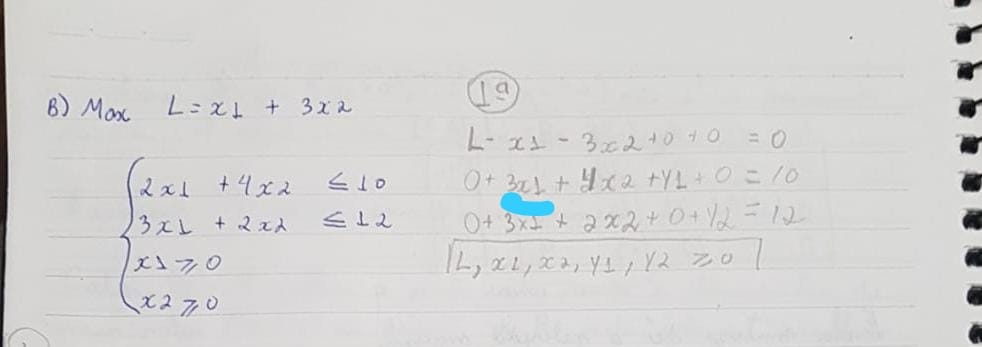 B) Max L = x1 + 3x2
2x1 + 4x2 ≤ 10
3x1 + 2x2 ≤ 12
x1 ≥ 0
x2 ≥ 0
1ª
L - x1 - 3x2 + 0 + 0 = 0
0 + 3x1 + 4x2 + y1 + 0 = 10
0 + 3x1 + 2x2 + 0 + y2 = 12
L, x1, x2, y1, y2 ≥ 0